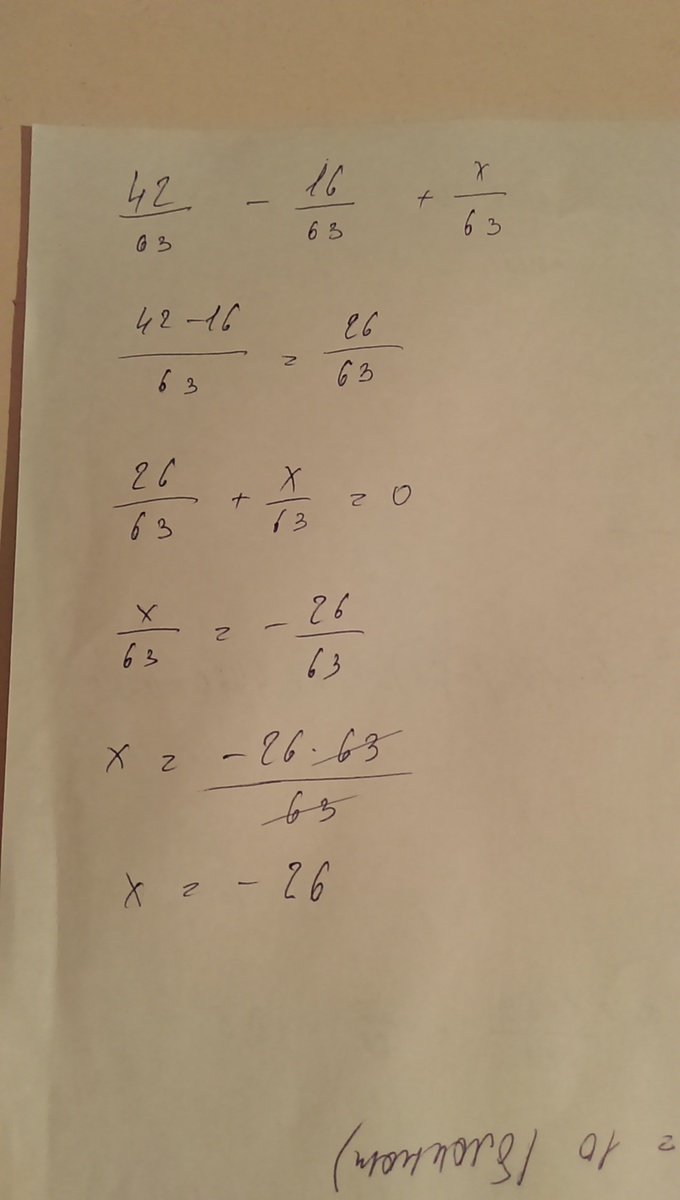 42/63 - 16/63 + x/63
42-16/63 = 26/63
26/63 + x/63 = 0
x/63 = - 26/63
x = -26·63/63
x = - 26
= 10 (блокнот)